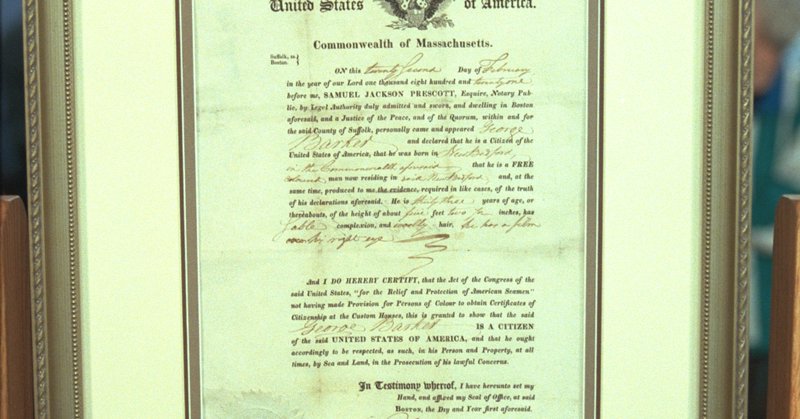 United States of America.
Commonwealth of Massachusetts.
Suffolk, ss.
Boston.
ON this twenty Second Day of February
in the year of our Lord one thousand eight hundred and twenty one
before me, SAMUEL JACKSON PRESCOTT, Esquire, Notary Pub-
lic, by Legal Authority duly admitted and sworn, and dwelling in Boston
aforesaid, and a Justice of the Peace, and of the Quorum, within and for
the said County of Suffolk, personally came and appeared George
Barker and declared that he is a Citizen of the
United States of America, that he was born in New Bedford
in the Commonwealth aforesaid that he is a FREE
man now residing in said New Bedford and, at the
same time, produced to me the evidence, required in like cases, of the truth
of his declarations aforesaid. He is thirty three years of age, or
thereabouts, of the height of about five feet two inches, has
Sable complexion, and woolly hair. he has a film
over his right eye
AND I DO HEREBY CERTIFY, that the Act of the Congress of the
said United States, "for the Relief and Protection of American Seamen"
not having made Provision for Persons of Colour to obtain Certificates of
Citizenship at the Custom Houses, this is granted to show that the said
George Barker IS A CITIZEN
of the said UNITED STATES OF AMERICA, and that he ought
accordingly to be respected, as such, in his Person and Property, at all
times, by Sea and Land, in the Prosecution of his lawful Concerns.
In Testimony whereof, I have hereunto set my
Hand, and affixed my Seal of Office, at said
BOSTON, the Day and Year first aforesaid.